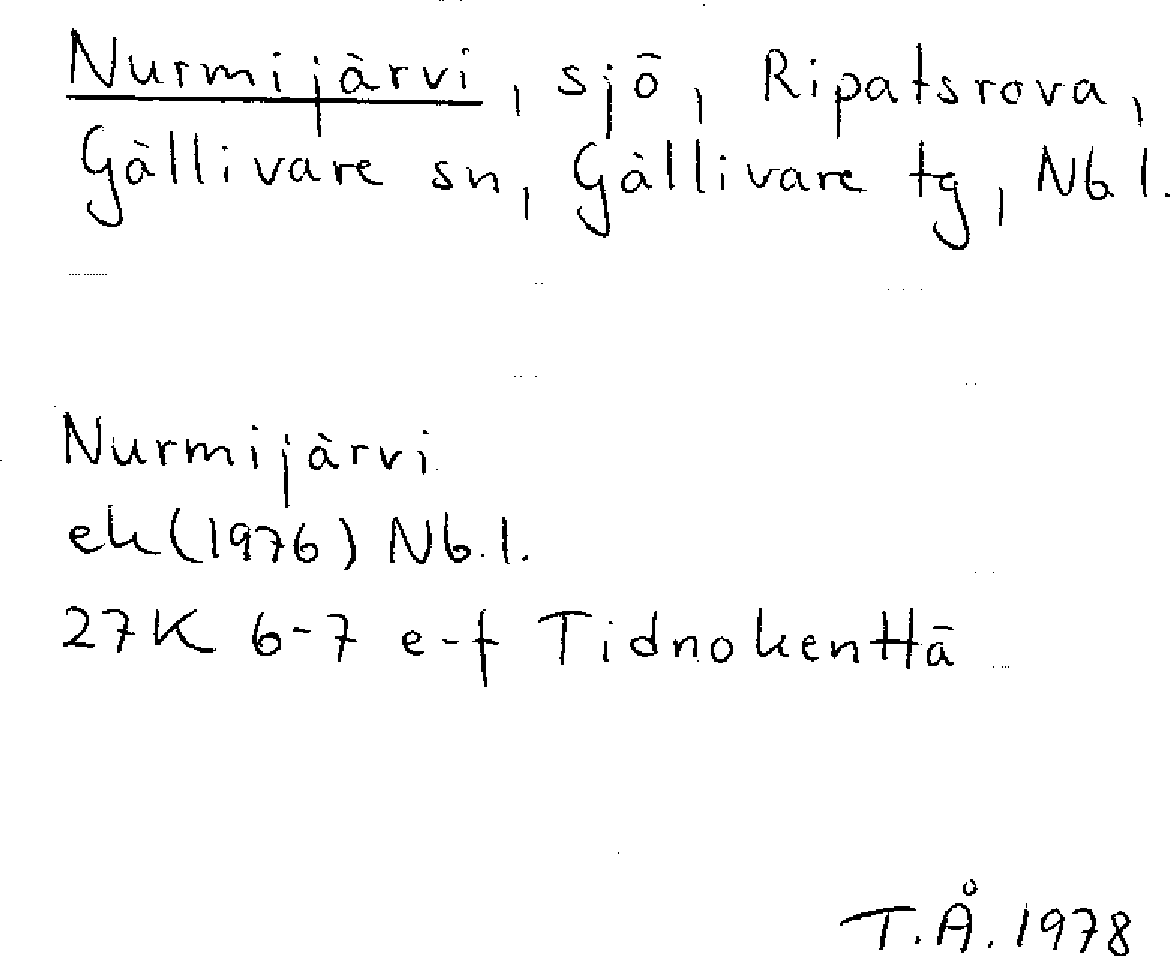 Nurmijärvi, sjö, Ripatsrova,
Gällivare sn, Gällivare tg, Nb.l.
Nurmijärvi
ek (1976) Nb.l.
27K 6-7 e-f Tidnokenttä
T.Å. 1978